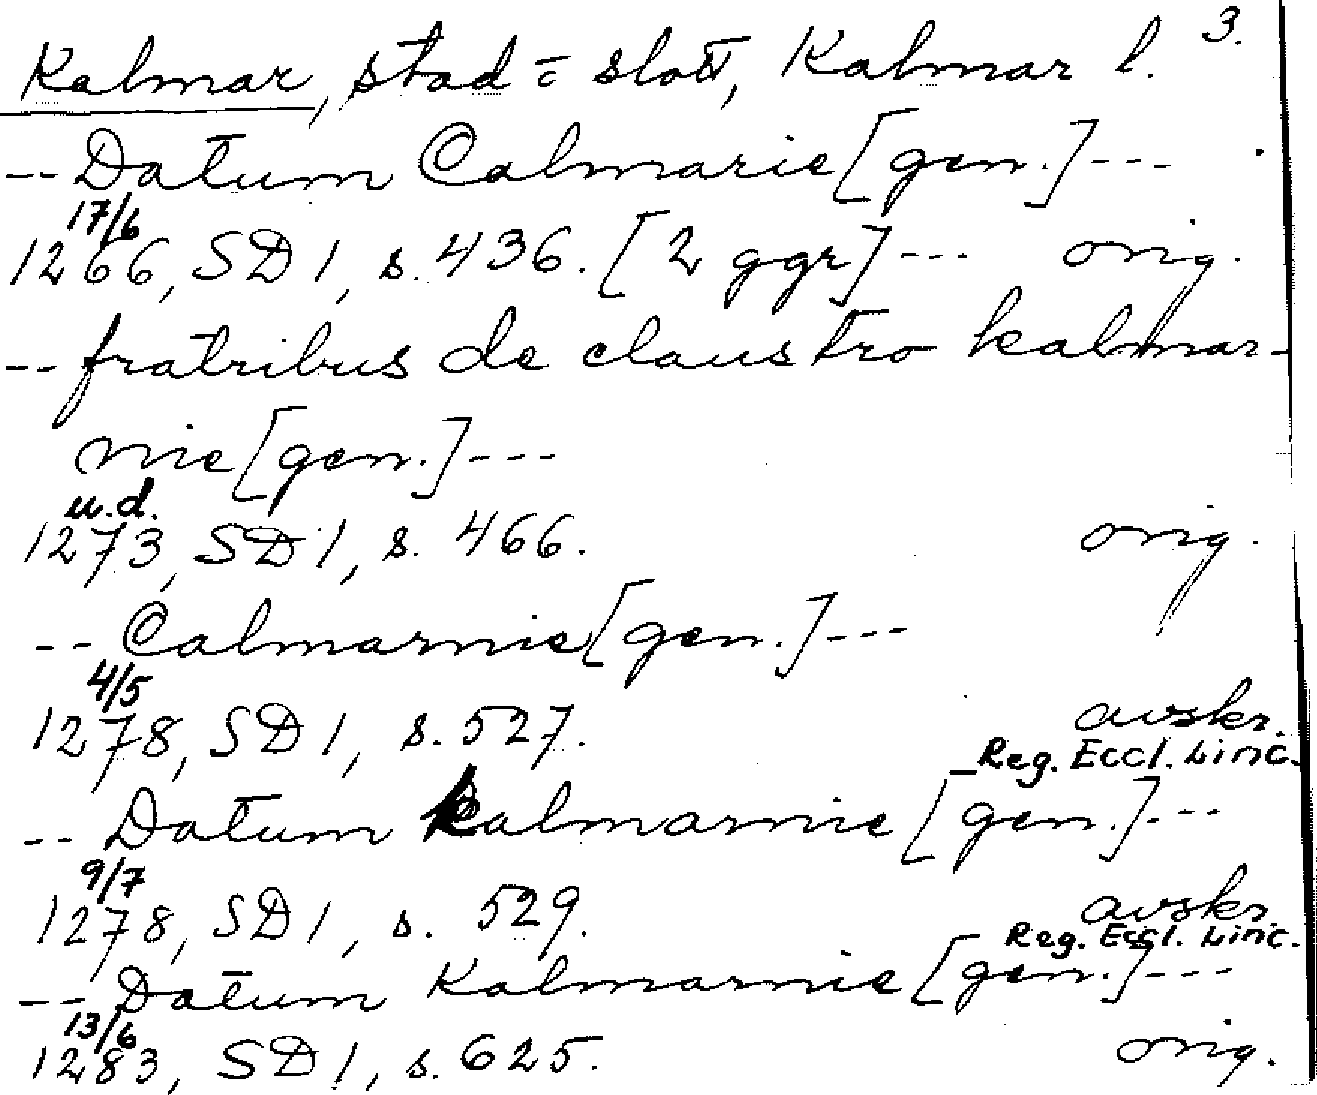 3.
Kalmar, stad = slott, Kalmar l.
-- Datum Calmarie [gen.] ---
17/6
1266, SD 1, s. 436. [2 ggr] --- orig.
-- fratribus de claustro kalmar-
nie [gen.] ---
u.d.
1273, SD 1, s. 466. orig.
-- Calmarnie [gen.] ---
4/5
1278, SD 1, s. 527. avskr.
Reg. Eccl. Linc.
-- Datum kalmarnie [gen.] ---
9/7
1278, SD 1, s. 529. avskr.
Reg. Eccl. Linc.
-- Datum Kalmarnie [gen.] ---
13/6
1283, SD 1, s. 625. orig.